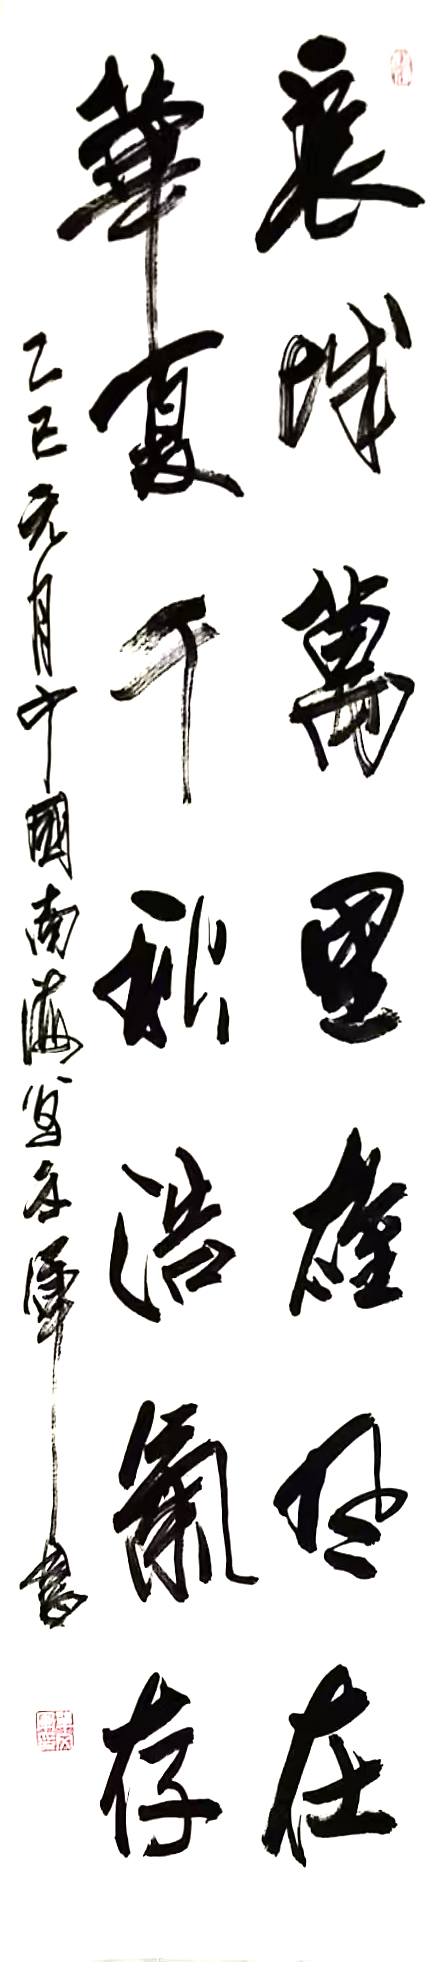 長城萬里雄風在
華夏千秋浩氣存
乙巳元月中國南海書